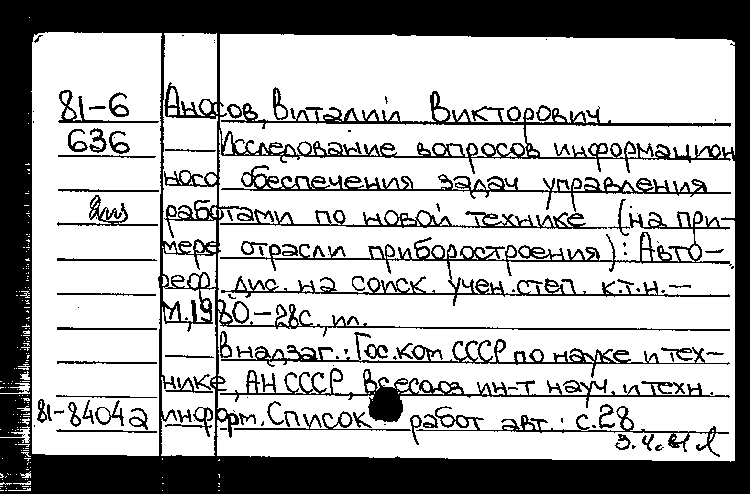 81-6 Аносов, Виталий Викторович.
636 Исследование вопросов информацион
ного обеспечения задач управления
работами по новой технике (на при-
мере отрасли приборостроения): Авто-
реф. дис. на соиск. учен. степ. к.т.н.—
М., 1980.—28с., ил.
В надзаг.: Гос. ком СССР по науке и тех-
нике, АН СССР, Всесоюз. ин-т науч. и техн.
81-84042 информ. Список работ авт.: с.28.